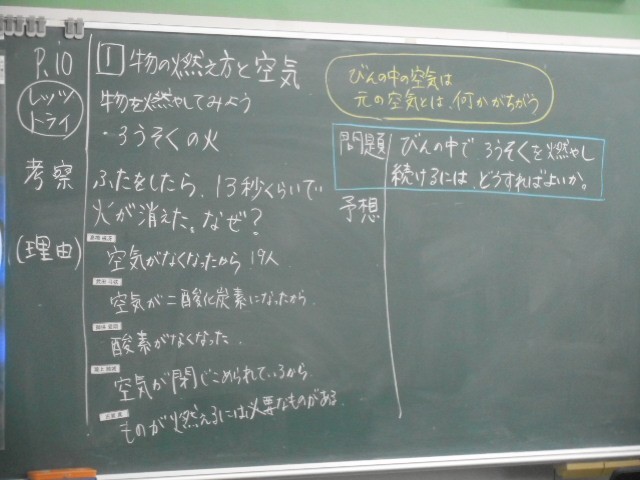 P.10
レッツ
トライ
1 物の燃え方と空気
物を燃やしてみよう
・ろうそくの火
考察
ふたをしたら、13秒くらいで
火が消えた。なぜ?
(理由)
空気がなくなったから 19人
空気が二酸化炭素になったから
酸素がなくなった
空気が閉じこめられているから
ものが燃えるには必要なものがある
びんの中の空気は
元の空気とは、何かがちがう
問題
びんの中で ろうそくを燃やし
続けるには、どうすればよいか。
予想